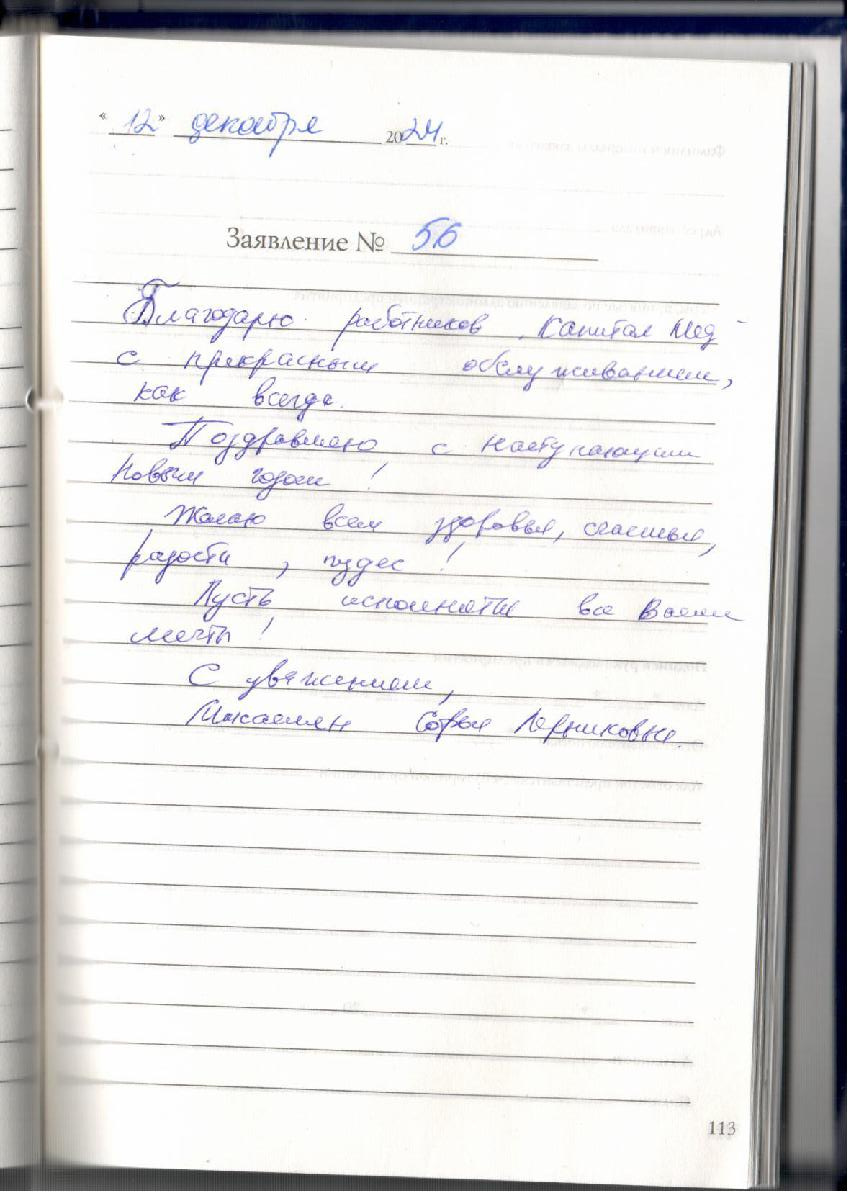 « 12 » декабря 2024 г.
Заявление № 56
Благодарю работников Капитал Мед
с прекрасным обслуживанием,
как всегда.
Поздравляю с наступающим
Новым годом!
Желаю всем здоровья, счастья,
радости, чудес!
Пусть исполнятся все Ваши
мечты!
С уважением,
Микаелян Софья Лерниковна.
113